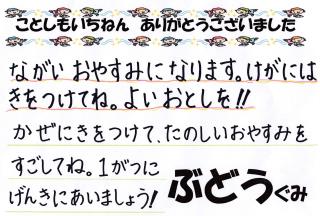 ことしもいちねん ありがとうございました
ながい おやすみになります。けがには
きをつけてね。よいおとしを!!
かぜにきをつけて、たのしいおやすみを
すごしてね。1がつに
げんきにあいましょう!
ぶどうぐみ